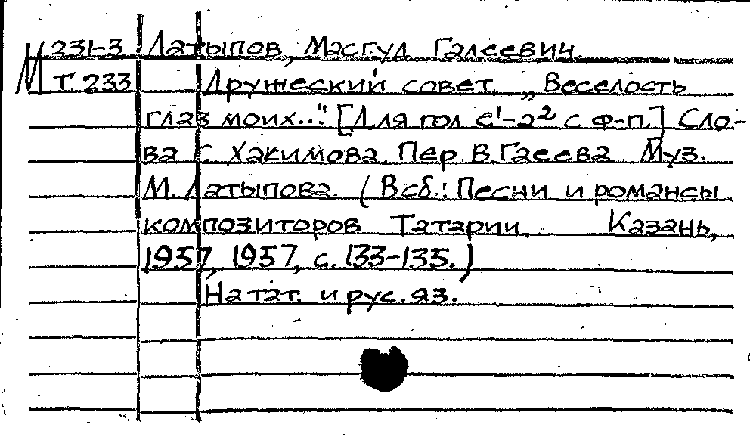 М 231-3 Латыпов, Масгуд Галеевич.
Т 233 Дружеский совет. „Веселость
глаз моих..." [Для гол. e¹-a² с ф-п.] Сло-
ва С. Хакимова. Пер. В. Гаеева. Муз.
М. Латыпова. (В сб.: Песни и романсы
композиторов Татарии. Казань,
1957, 1957, с. 133-135.)
На тат. и рус. яз.